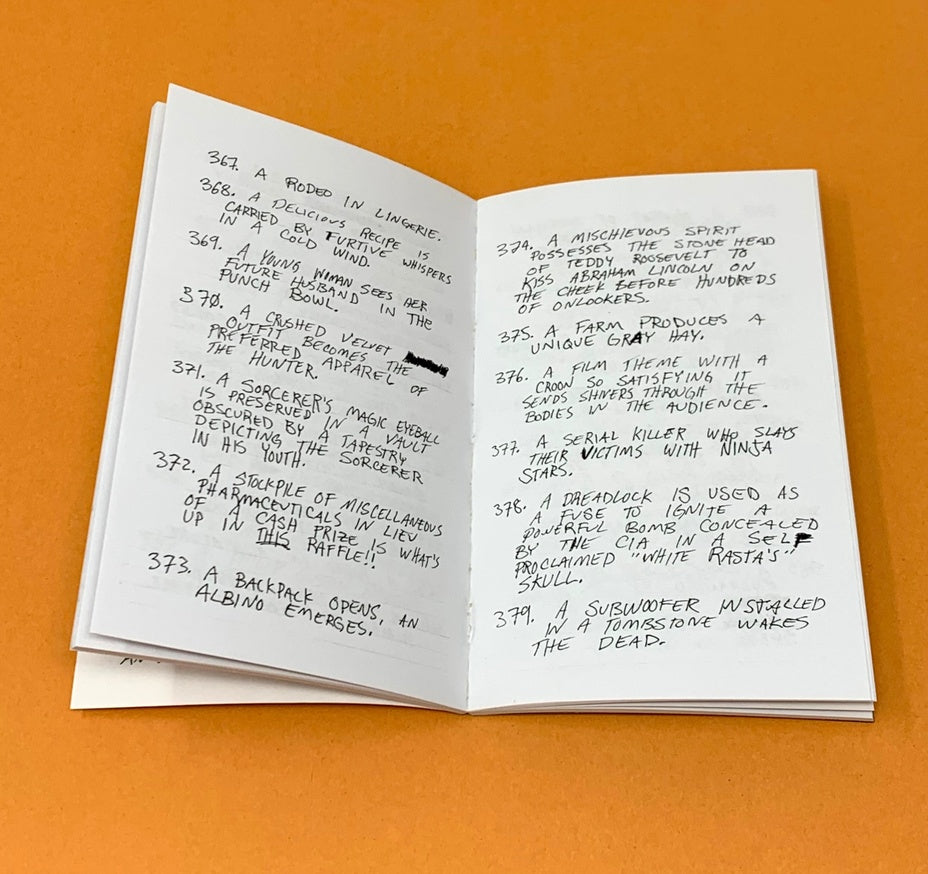 367. A RODEO IN LINGERIE.
368. A DELICIOUS RECIPE IS
CARRIED BY FURTIVE WHISPERS
IN A COLD WIND.
369. A YOUNG WOMAN SEES HER
FUTURE HUSBAND IN THE
PUNCH BOWL.
370. A CRUSHED VELVET
OUTFIT BECOMES THE
PREFERRED APPAREL OF
THE HUNTER.
371. A SORCERER'S MAGIC EYEBALL
IS PRESERVED IN A VAULT
OBSCURED BY A TAPESTRY
DEPICTING THE SORCERER
IN HIS YOUTH.
372. A STOCKPILE OF MISCELLANEOUS
PHARMACEUTICALS IN LIEU
OF A CASH PRIZE IS WHAT'S
UP IN THIS RAFFLE!!
373. A BACKPACK OPENS, AN
ALBINO EMERGES.
374. A MISCHIEVOUS SPIRIT
POSSESSES THE STONE HEAD
OF TEDDY ROOSEVELT TO
KISS ABRAHAM LINCOLN ON
THE CHEEK BEFORE HUNDREDS
OF ONLOOKERS.
375. A FARM PRODUCES A
UNIQUE GRAY HAY.
376. A FILM THEME WITH A
CROON SO SATISFYING IT
SENDS SHIVERS THROUGH THE
BODIES IN THE AUDIENCE.
377. A SERIAL KILLER WHO SLAYS
THEIR VICTIMS WITH NINJA
STARS.
378. A DREADLOCK IS USED AS
A FUSE TO IGNITE A
POWERFUL BOMB CONCEALED
BY THE CIA IN A SELF
PROCLAIMED "WHITE RASTA'S"
SKULL.
379. A SUBWOOFER INSTALLED
IN A TOMBSTONE WAKES
THE DEAD.